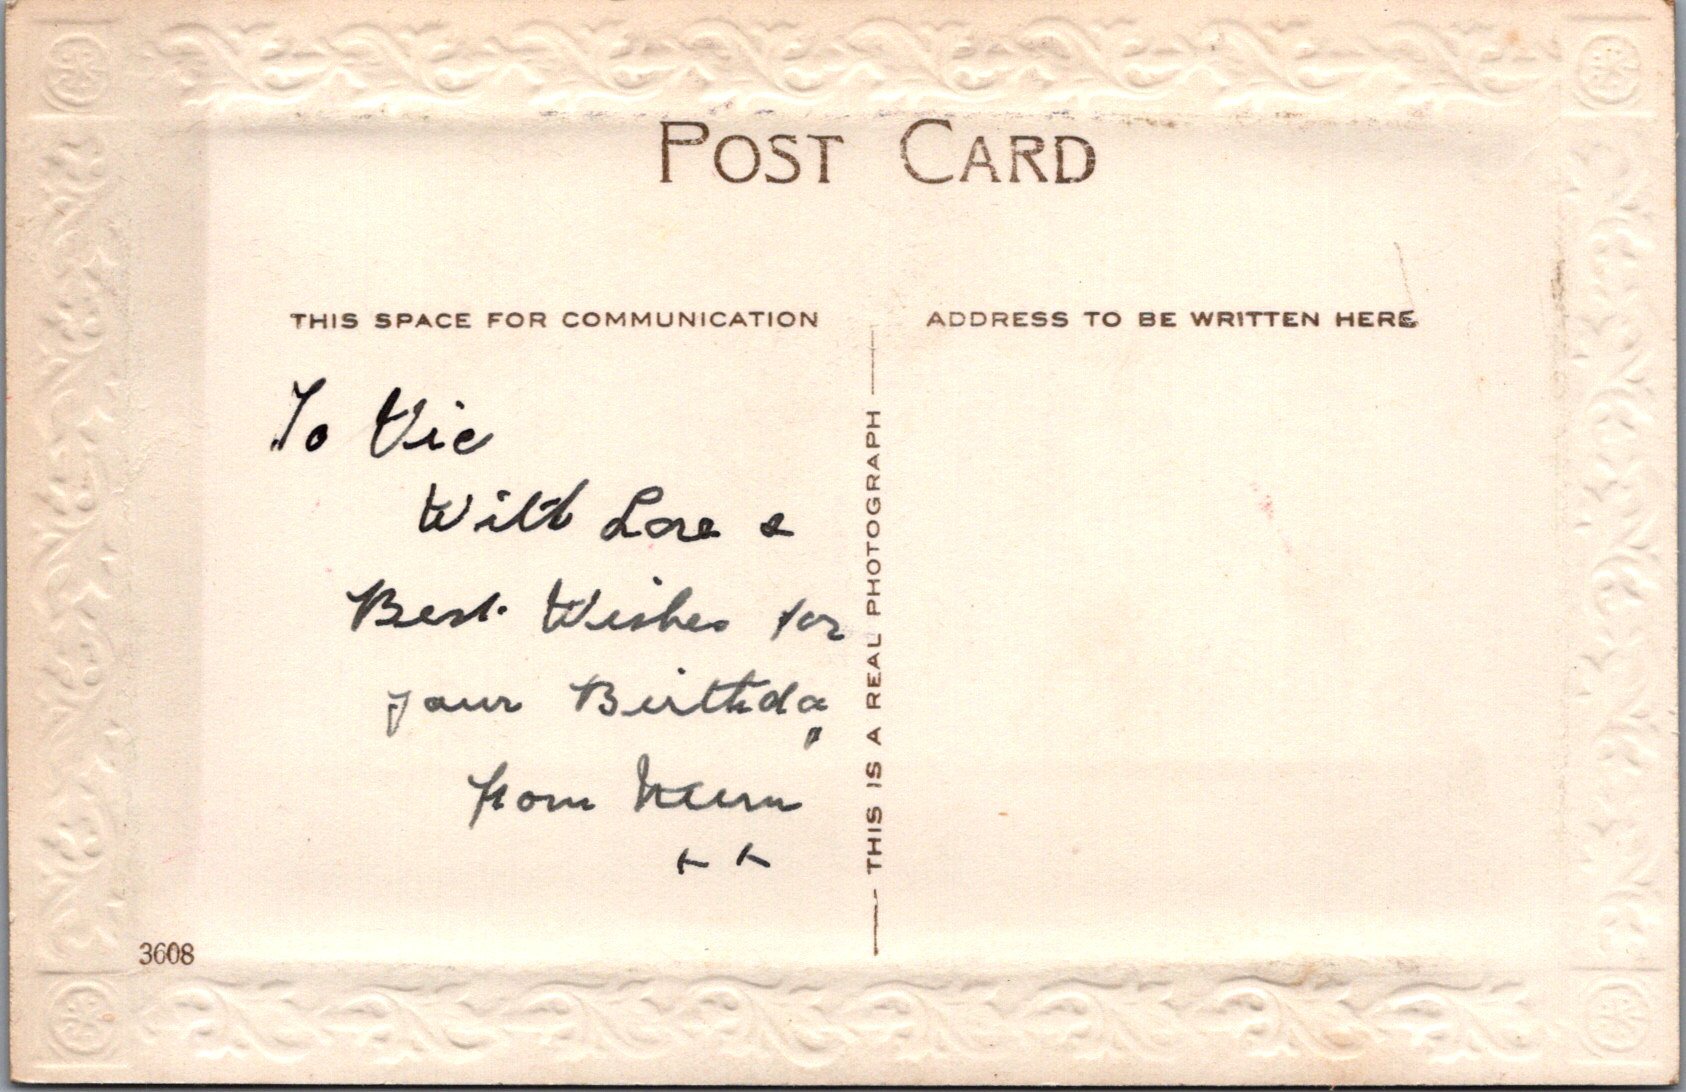 POST CARD
THIS SPACE FOR COMMUNICATION
ADDRESS TO BE WRITTEN HERE
To Vic
With Love &
Best Wishes for
your Birthday
from Mum
x x
THIS IS A REAL PHOTOGRAPH
3608